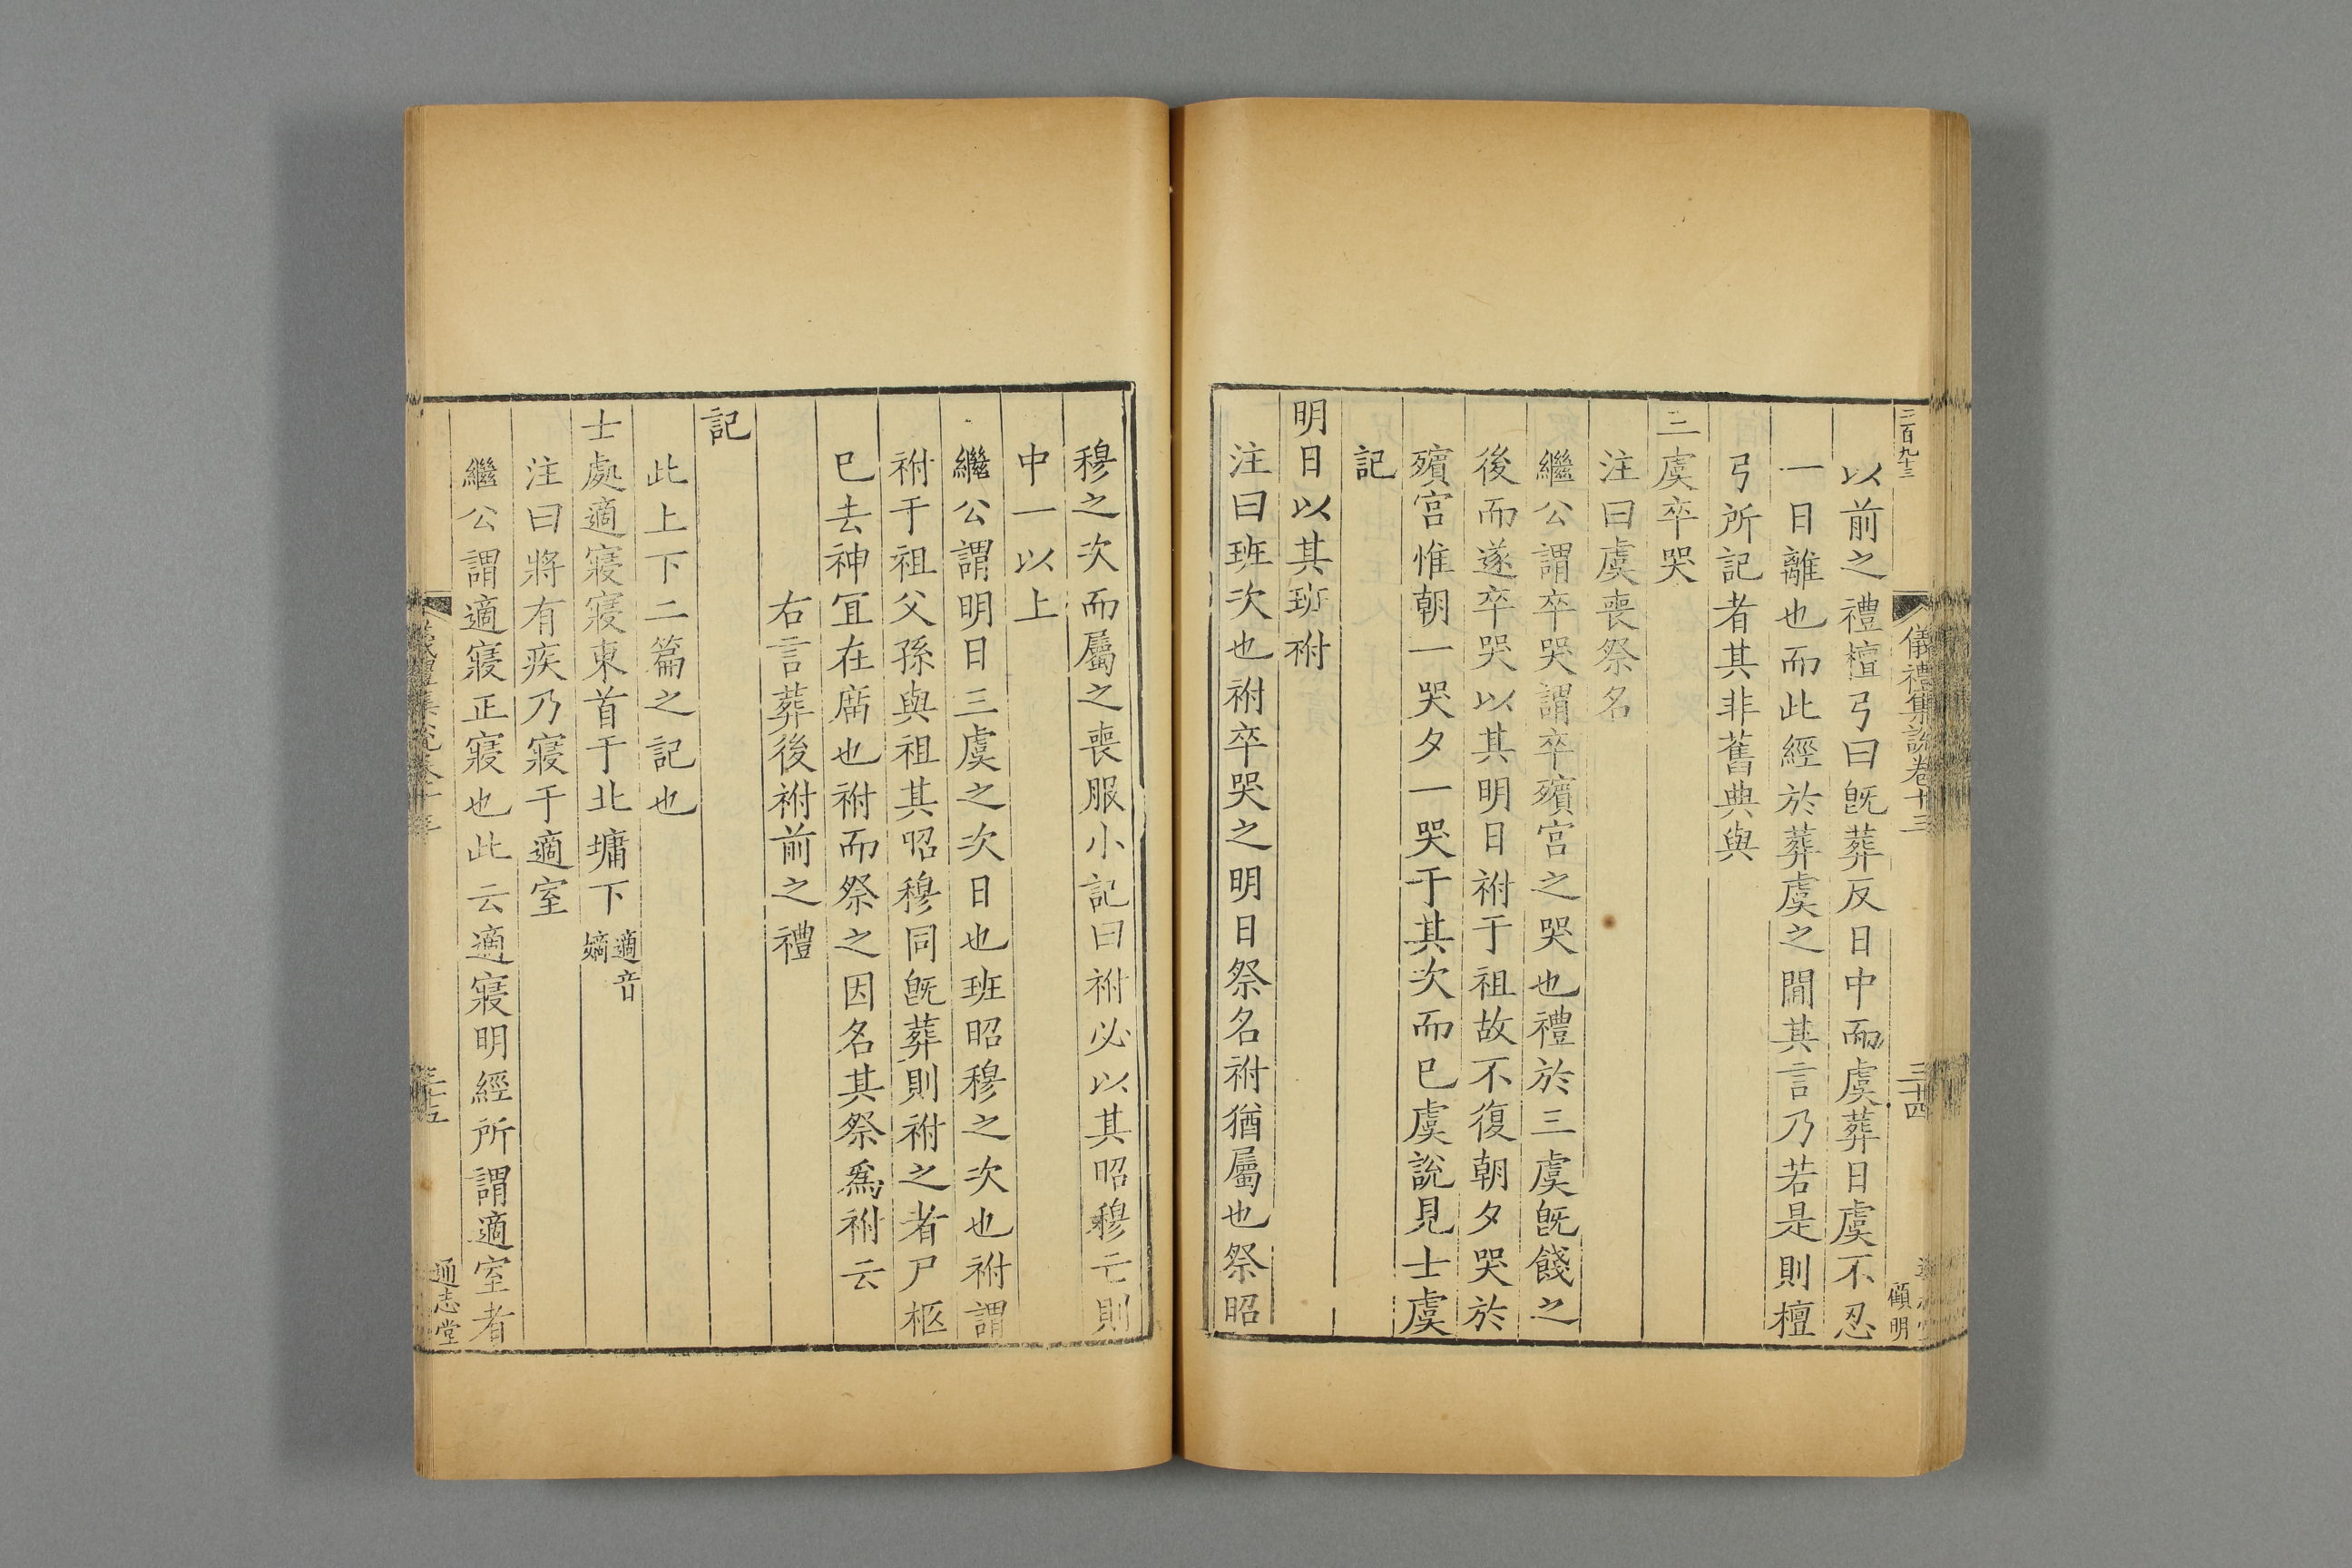 二百九十三
儀禮集說卷十三
三十四
顧明
以前之禮檀弓曰旣葬反日中而虞葬日虞不忍
一日離也而此經於葬虞之閒其言乃若是則檀
弓所記者其非舊典與
三虞卒哭
注曰虞喪祭名
繼公謂卒哭謂卒殯宮之哭也禮於三虞旣餞之
後而遂卒哭以其明日祔于祖故不復朝夕哭於
殯宮惟朝一哭夕一哭于其次而已虞說見士虞
記
明日以其班祔
注曰班次也祔卒哭之明日祭名祔猶屬也祭昭
穆之次而屬之喪服小記曰祔必以其昭穆亡則
中一以上
繼公謂明日三虞之次日也班昭穆之次也祔謂
祔于祖父孫與祖其昭穆同旣葬則祔之者尸柩
已去神宜在廟也祔而祭之因名其祭爲祔云
右言葬後祔前之禮
記
此上下二篇之記也
士處適寢寢東首于北墉下 適音嫡
注曰將有疾乃寢于適室
繼公謂適寢正寢也此云適寢明經所謂適室者
儀禮集說卷十三
三十五
通志堂